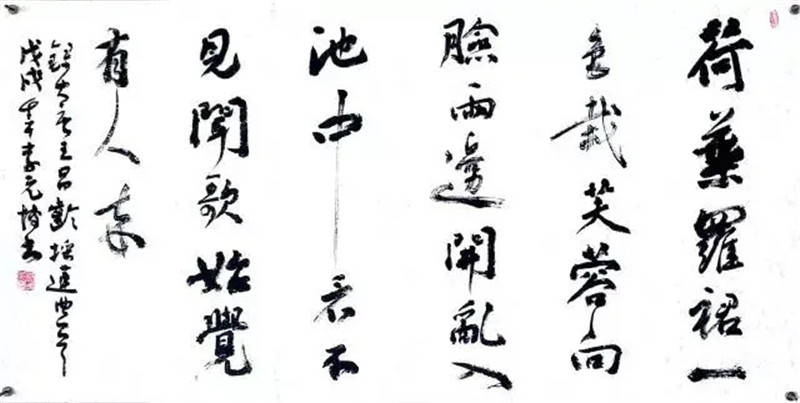 荷葉羅裙一
色裁芙蓉向
臉兩邊開亂入
池中看不
見聞歌始覺
有人來
錄王昌齡採蓮曲
戊戌年李元書